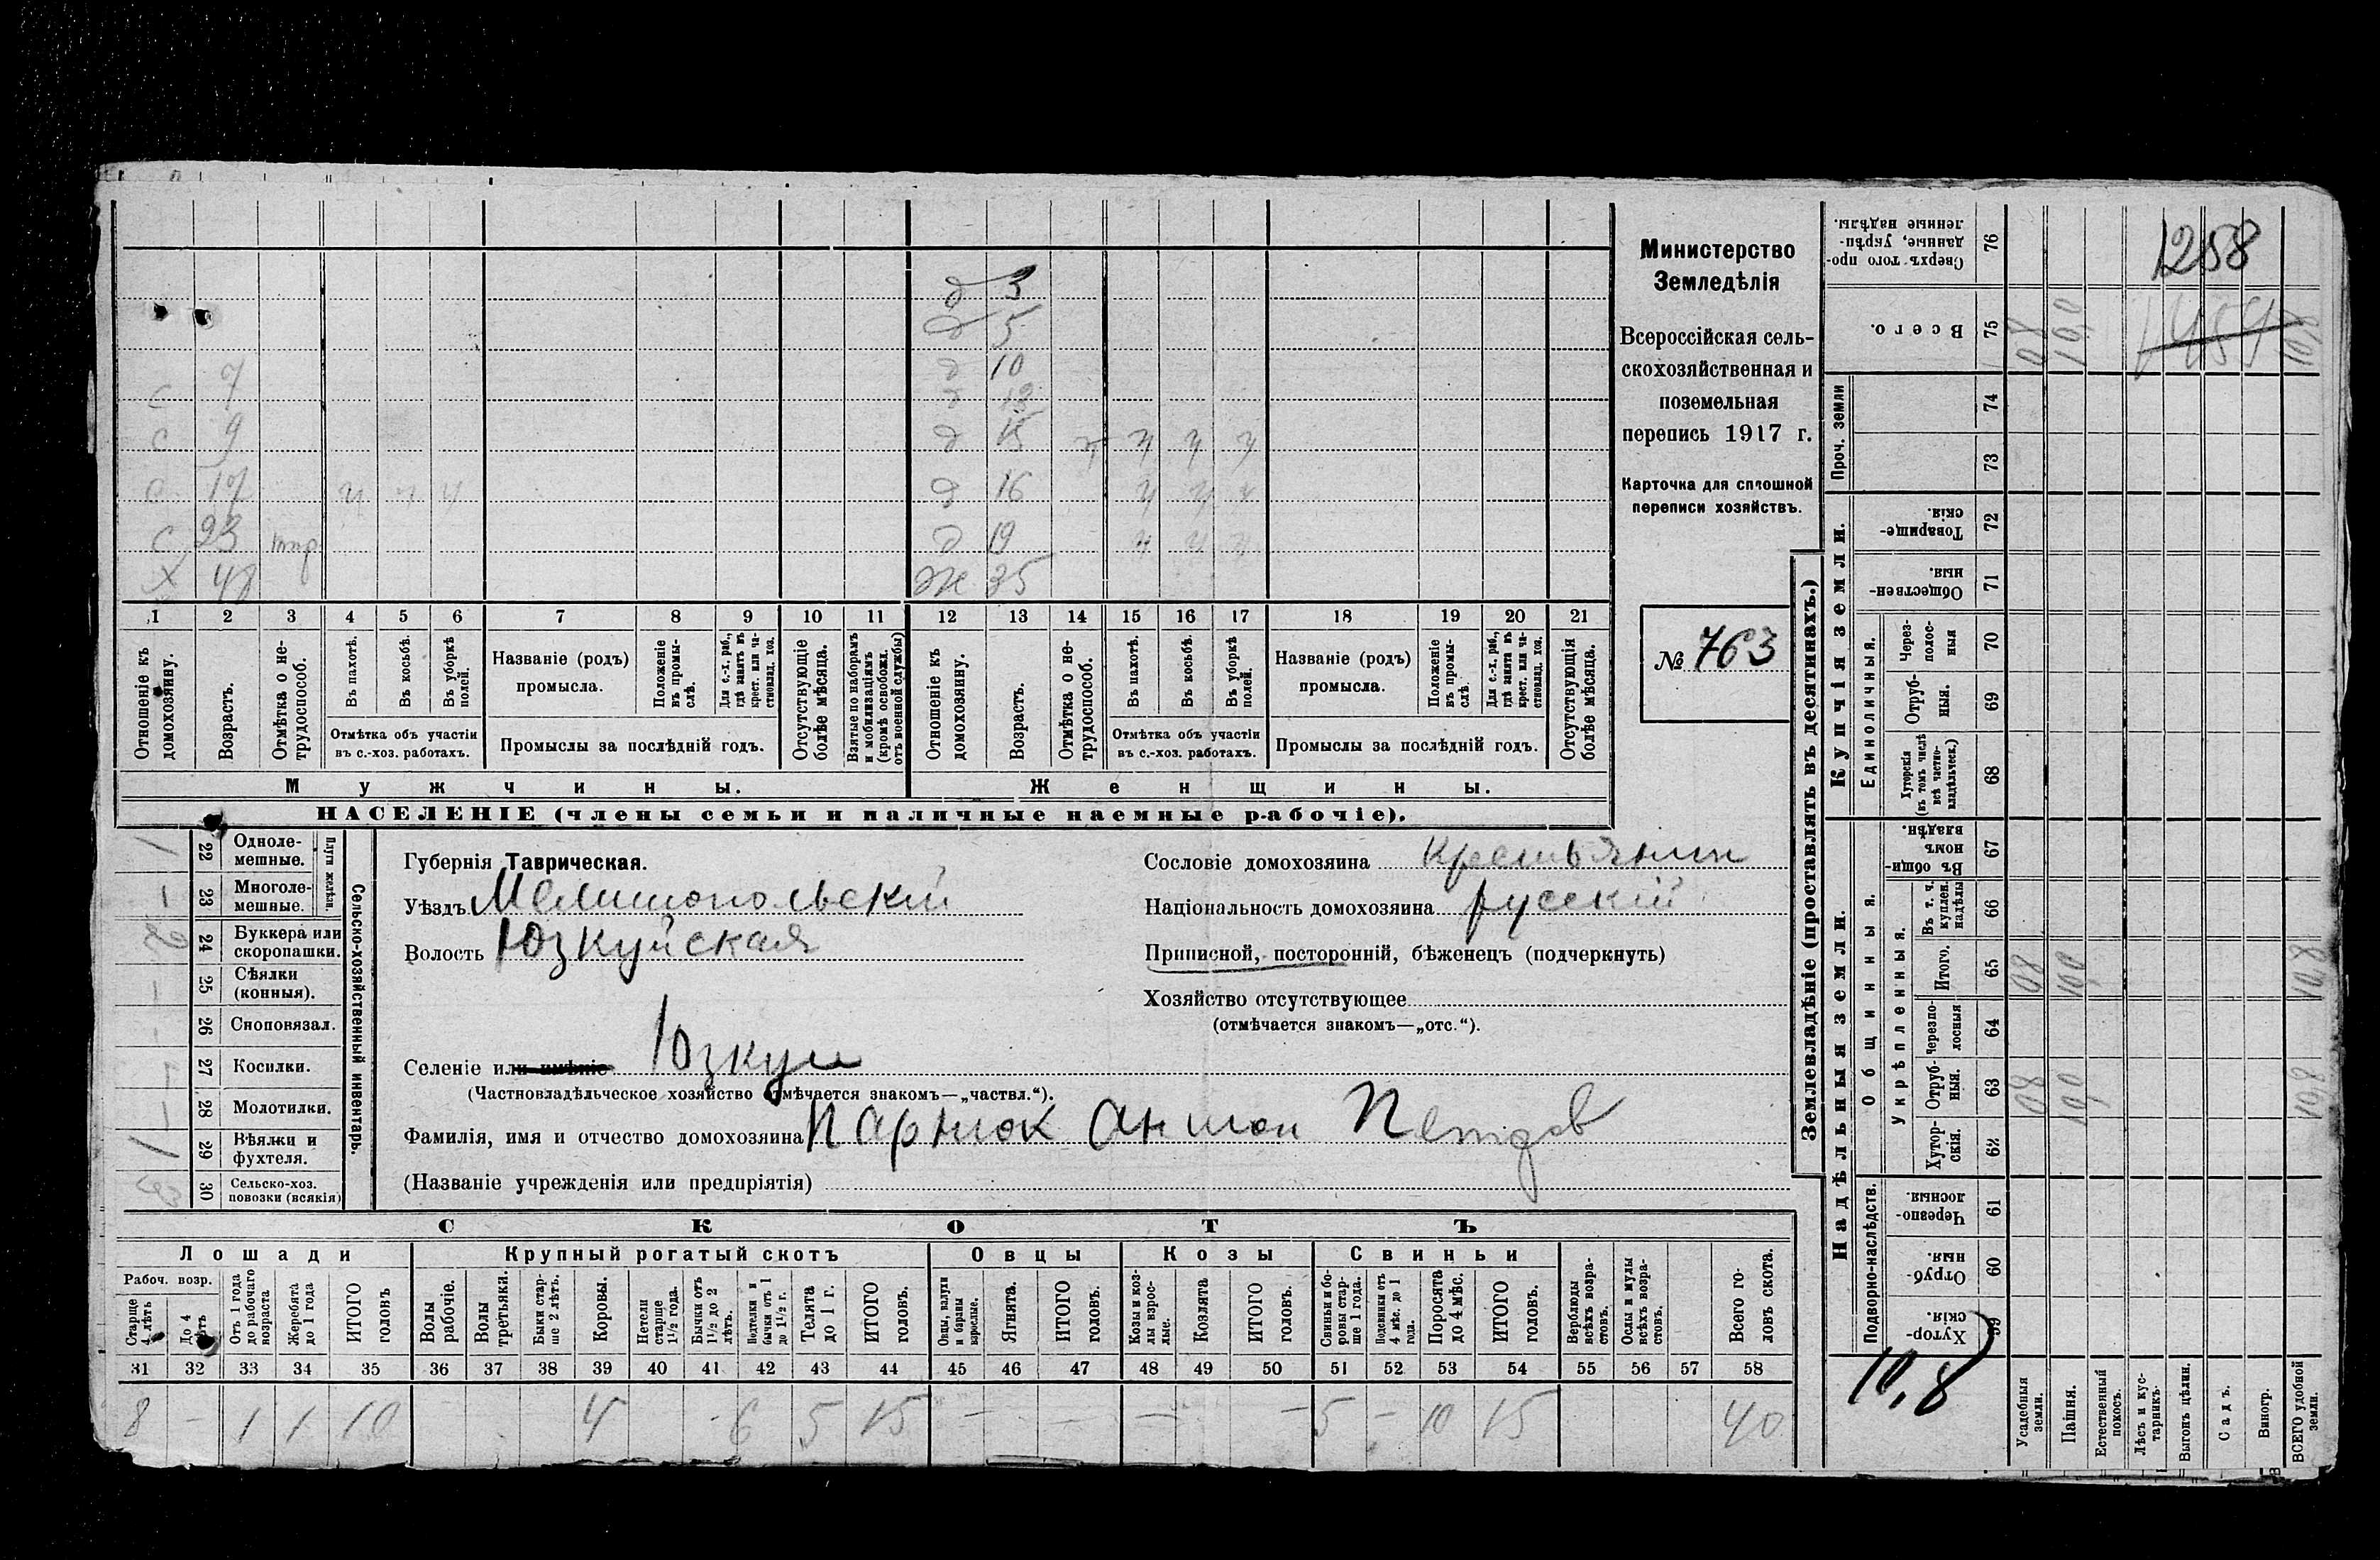 д 3
д 5
д 10
с 7
с 9
д 15
с 17 ч ч ч
д 16
с 23
д 19
х 48
ж 35
1 2 3 4 5 6 7 8 9 10 11 12 13 14 15 16 17 18 19 20 21
Отношеніе къ домохозяину.
Возрастъ.
Отмѣтка о не-трудоспособ.
Въ пахотѣ.
Въ косьбѣ.
Въ уборкѣ полей.
Отмѣтка объ участіи въ с.-хоз. работахъ.
Названіе (родъ) промысла.
Положеніе въ промы-слѣ.
Для с.-х. раб., гдѣ занятъ въ крест. или ча-стновлад. хоз.
Промыслы за послѣдній годъ.
Отсутствующіе болѣе мѣсяца.
Взятые по наборамъ и мобилизаціямъ (кромѣ освобожд. отъ военной службы)
Отношеніе къ домохозяину.
Возрастъ.
Отмѣтка о не-трудоспособ.
Въ пахотѣ.
Въ косьбѣ.
Въ уборкѣ полей.
Отмѣтка объ участіи въ с.-хоз. работахъ.
Названіе (родъ) промысла.
Положеніе въ промы-слѣ.
Для с.-х. раб., гдѣ занята въ крест. или ча-стновлад. хоз.
Промыслы за послѣдній годъ.
Отсутствующія болѣе мѣсяца.
Мужчины.
Женщины.
НАСЕЛЕНІЕ (члены семьи и наличные наемные рабочіе).
Министерство
Земледѣлія
Всероссійская сель-
скохозяйственная и
поземельная
перепись 1917 г.
Карточка для сплошной
переписи хозяйствъ.
№ 763
Сельско-хозяйственный инвентарь.
Плуги желѣзн.
22 Одноле-мешные.
23 Многоле-мешные.
24 Буккера или скоропашки.
25 Сѣялки (конныя).
26 Сноповязал.
27 Косилки.
28 Молотилки.
29 Вѣялки и фухтеля.
30 Сельско-хоз. повозки (всякія)
Губернія Таврическая.
Уѣздъ Мелитопольскій
Волость Юзкуйская
Селеніе или имѣніе Юзкуи
(Частновладѣльческое хозяйство отмѣчается знакомъ—„частвл.“).
Фамилія, имя и отчество домохозяина Парнюк Антон Петров
(Названіе учрежденія или предпріятія)
Сословіе домохозяина крестьянин
Національность домохозяина русскій
Приписной, посторонній, бѣженецъ (подчеркнуть)
Хозяйство отсутствующее
(отмѣчается знакомъ—„отс.“).
СКОТЪ
Лошади
Крупный рогатый скотъ
Овцы
Козы
Свиньи
Рабоч. возр.
Старше 4 лѣтъ
До 4 лѣтъ
Отъ 1 года до рабочаго возраста
Жеребята до 1 года
ИТОГО головъ
Волы рабочіе.
Волы третьяки.
Быки стар-ше 2 лѣтъ.
Коровы.
Нетели старше 1½ года.
Бычки отъ 1½ до 2 лѣтъ.
Подтелки и бычки отъ 1 до 1½ г.
Телята до 1 г.
ИТОГО головъ.
Овцы, валухи и бараны взрослые.
Ягнята.
ИТОГО головъ.
Козы и коз-лы взрос-лые.
Козлята
ИТОГО головъ.
Свиньи и бо-ровы стар-ше 1 года.
Подсвинки отъ 4 мѣс. до 1 года.
Поросята до 4 мѣс.
ИТОГО головъ.
Верблюды всѣхъ возра-стовъ.
Ослы и мулы всѣхъ возра-стовъ.
Всего го-ловъ скота.
31 32 33 34 35 36 37 38 39 40 41 42 43 44 45 46 47 48 49 50 51 52 53 54 55 56 57 58
8 - 1 1 10 4 - 6 5 15 - - - - 5 - 10 15 40
Землевладѣніе (проставлять въ десятинахъ.)
Купчія земли.
Надѣльныя земли.
Сверхъ того про-данные, укрѣп-ленные надѣлы. 76
1258
Всего. 75
10,8
Проч. земли 74 73
Товарище-скія. 72
Обществен-ныя. 71
Единоличныя.
Через-полос-ныя 70
Отруб-ныя. 69
Хуторскія (въ томъ числѣ всѣ частно-владѣльческ.) 68
Общинныя.
Въ общин-номъ владѣн. 67
Укрѣпленныя.
Въ т. ч. куплен. надѣлы 66
Итого. 65
10,8
Черезпо-лосныя 64
Отруб-ныя. 63
10,8
Хутор-скія. 62
Подворно-наслѣдств.
Черезпо-лосныя. 61
Отруб-ныя. 60
Хутор-скія. 59
10,8
Усадебныя земли.
Пашня.
Естественный покосъ.
Лѣсъ и кус-тарникъ.
Выгонъ цѣлин.
Садъ.
Виногр.
ВСЕГО удобной земли.